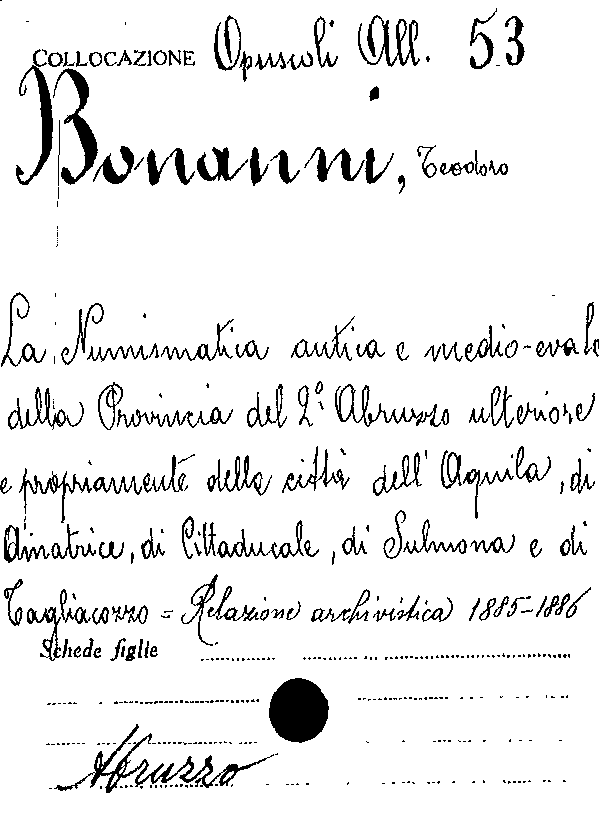 COLLOCAZIONE Opuscoli All. 53
Bonanni, Teodoro
La Numismatica antica e medio-evale
della Provincia del 2º Abruzzo ulteriore
e propriamente delle città dell'Aquila, di
Amatrice, di Cittaducale, di Sulmona e di
Tagliacozzo = Relazione archivistica 1885-1886
Schede figlie
Abruzzo